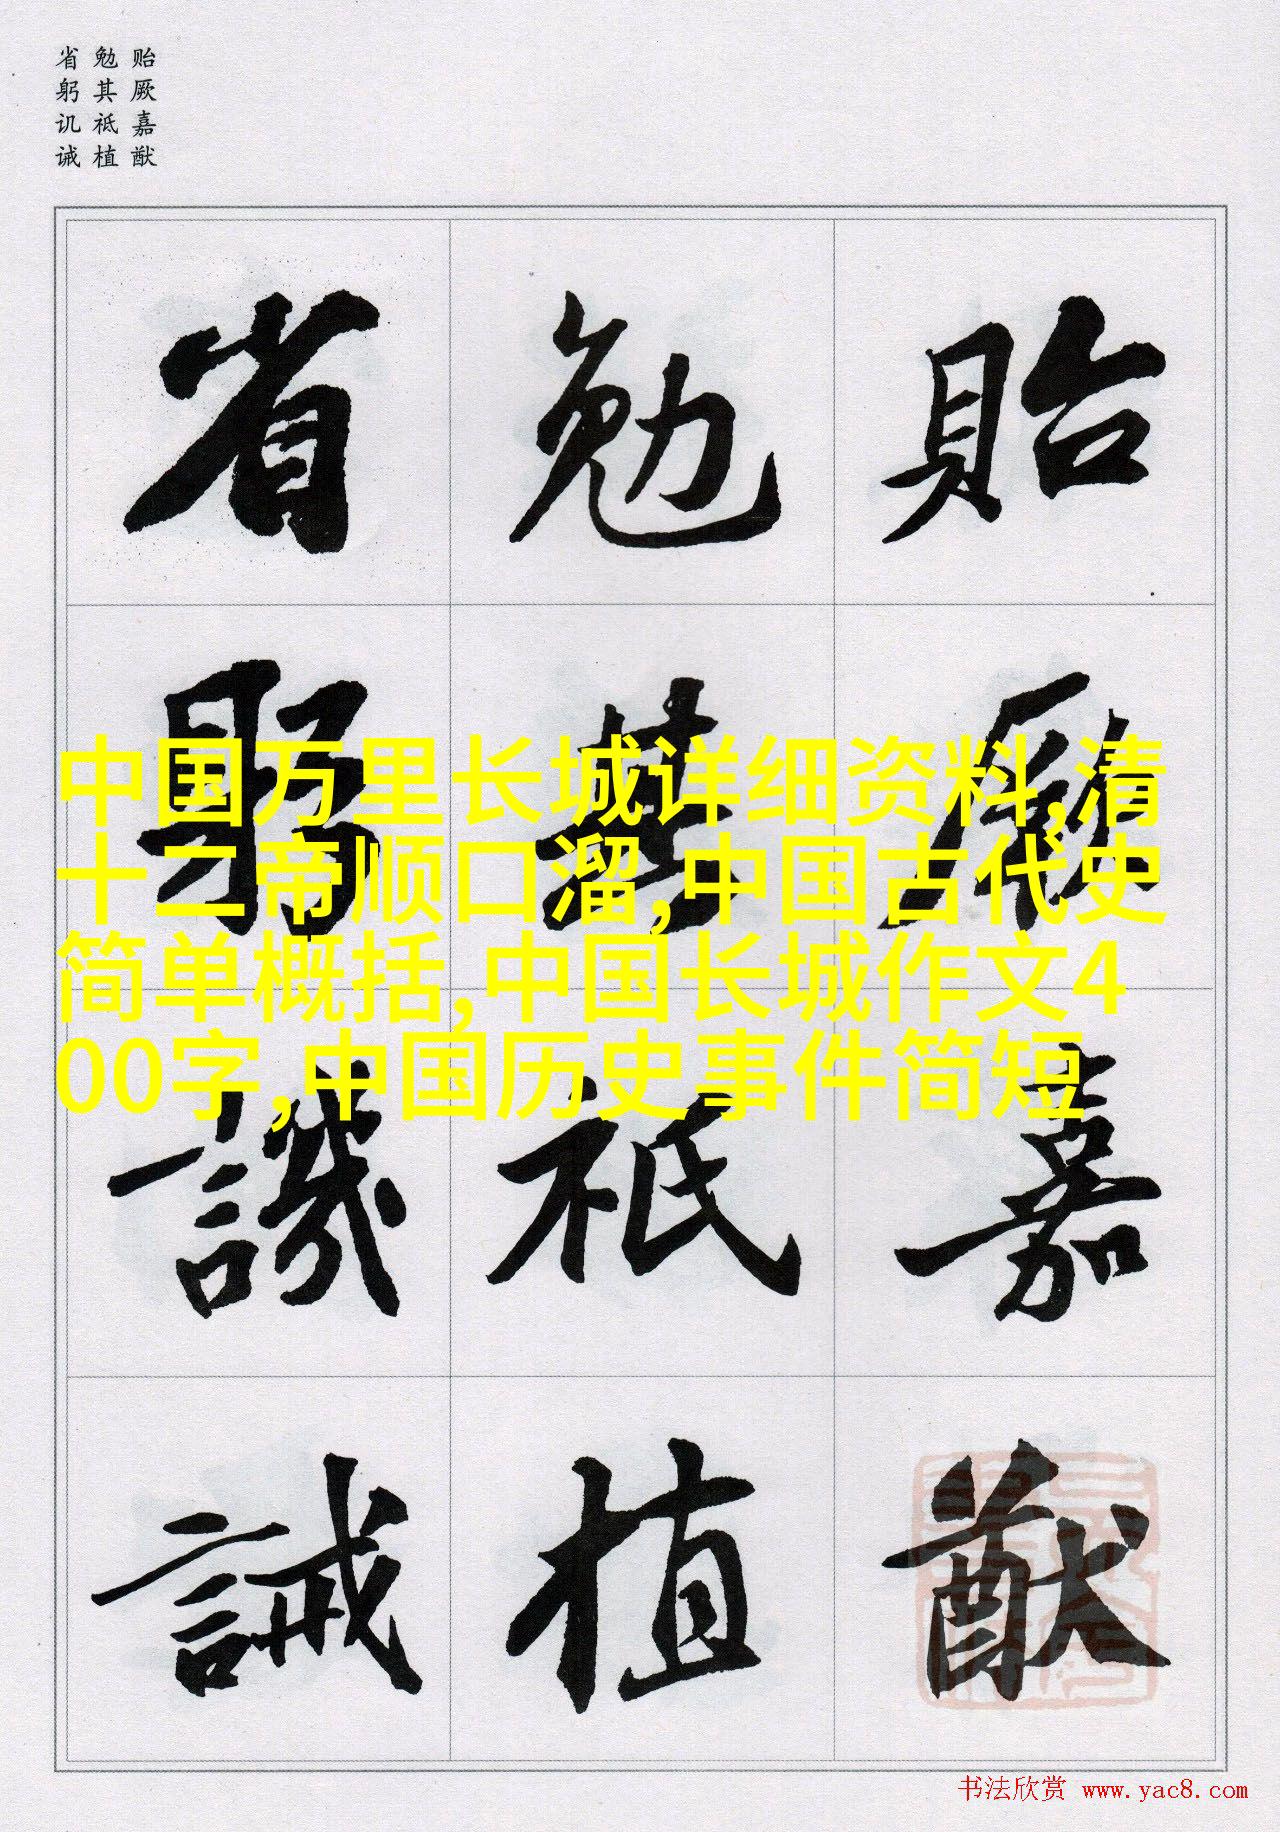 贻厥嘉猷
勉其祗植
省躬讥诫
貽厥嘉猷
勉其祗植
省躬譏誡
中国万里长城详细资料,清
十二帝顺口溜,中国古代史
简单概括,中国长城作文4
00字,中国历史事件简短
书法欣赏 www.yac8.com